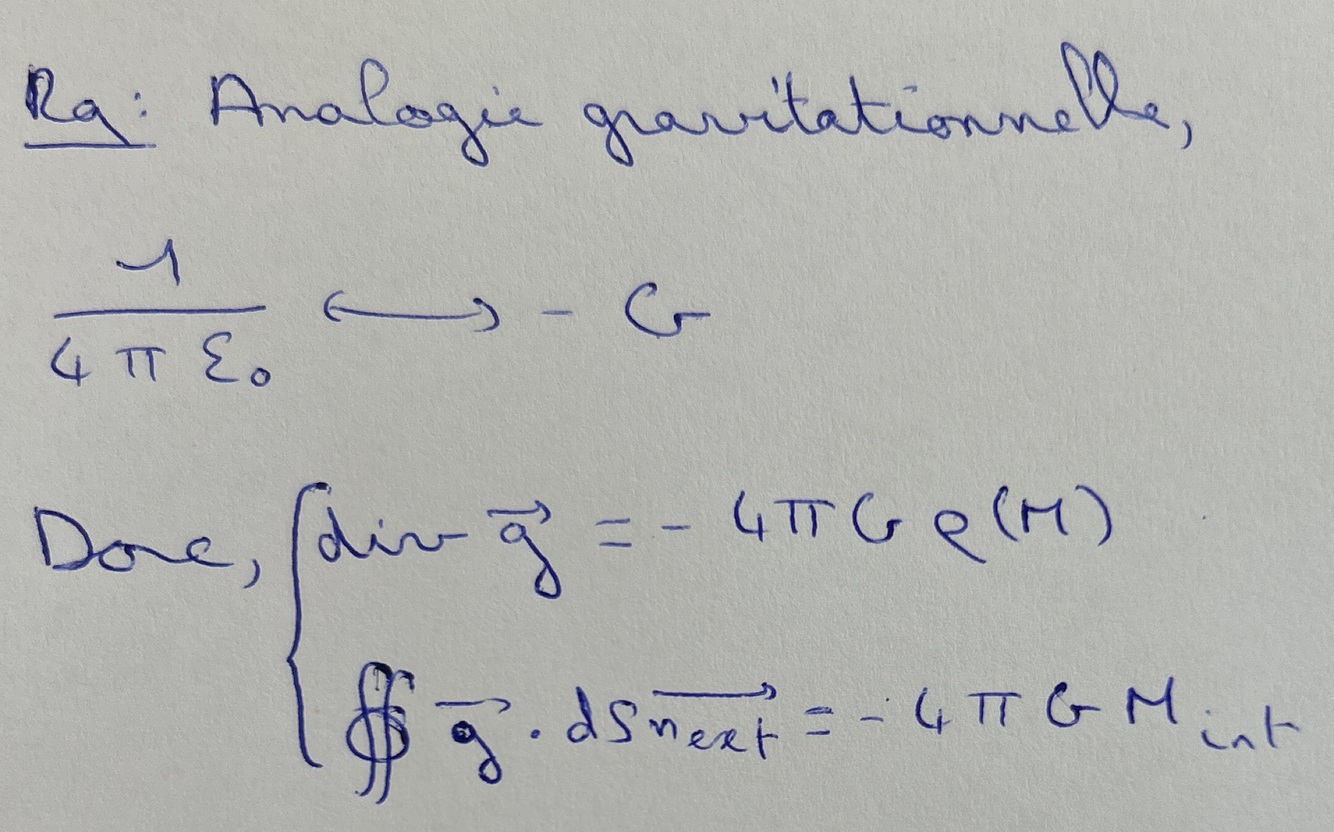 Rq: Analogie gravitationnelle,
1/(4 π ε₀) ⟷ - G
Donc, { div g⃗ = - 4π G ρ(M)
∯ g⃗ . dS n⃗ext = - 4 π G M int